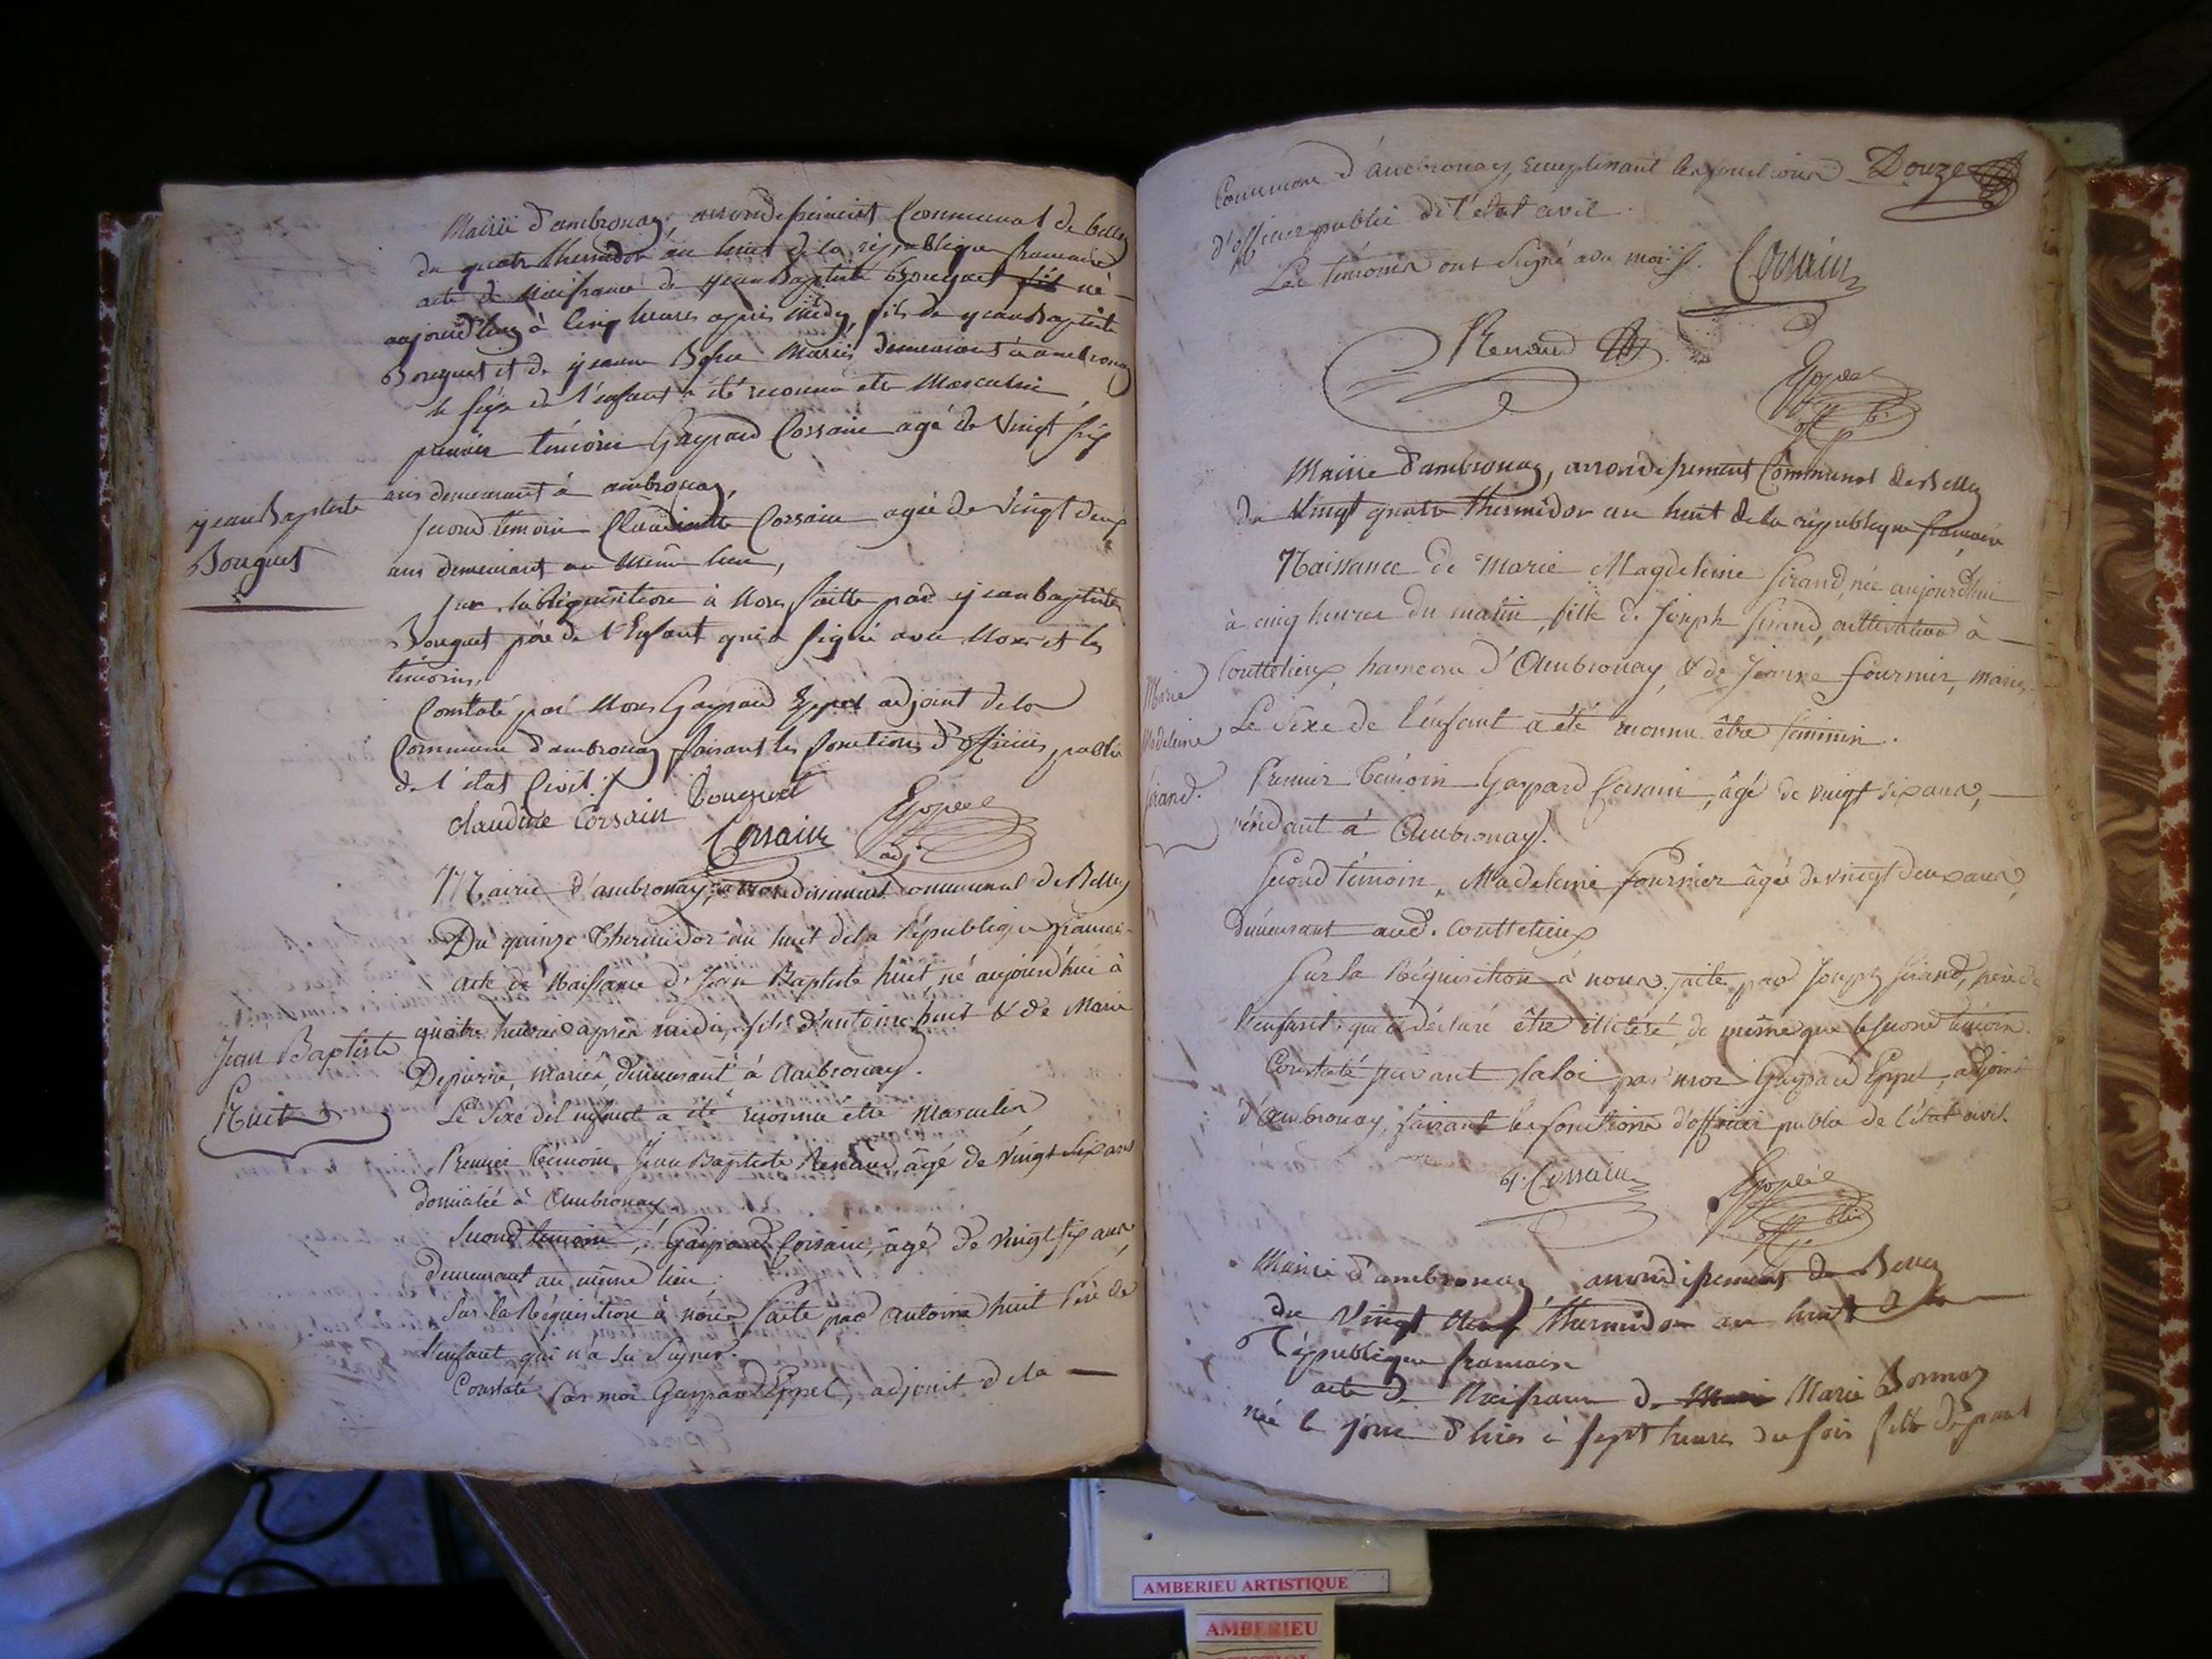 Mairie d'ambronay, arrondissement Communal de belley
du quatre thermidor an huit de la république francaise
acte de Naissance de jean Baptiste Bouguet né
aujourd'huy à Cinq heures après midy, fils de jean Baptiste
Bouguet et de jeanne Mariés demeurant à ambronay
le sexe de l'enfant a été reconnu etre Masculin
premier temoin Gaspard Corsain agé de Vingt six
ans demeurant à ambronay,
second temoin Claudine Corsain agée de Vingt deux
ans demeurant au même lieu,
sur la Réquisition à Nous faitte par jean baptiste
Bouguet père de l'Enfant qui a signé avec Nous et les
témoins,
Constaté par Nous Gaspard Eppel adjoint de la
Commune d'ambronay faisant les fonctions d'officier public
de l'état Civil./
jean Baptiste
Bouguet
Claudine Corsain Bouguet
Corsain Eppel
adj.
Mairie d'ambronay, arrondissement communal de Belley
Du quinze Thermidor an huit de la République francai-
acte de Naissance de Jean Baptiste huit, né aujourd'hui à
quatre heures après midi, fils d'antoine huit & de Marie
Depierre, mariés, demeurant à Ambronay.
Le Sexe de l'enfant a été reconnu etre Masculin
Premier temoin, Jean Baptiste Renaud, âgé de vingt six ans
domicilié à Ambronay
Second temoin, Gaspard Corsain, âgé de vingt six ans,
demeurant au même lieu.
Sur la Réquisition à nous faite par antoine huit Père de
l'enfant qui n'a su signer.
Constaté par moi Gaspard Eppel, adjoint de la
Jean Baptiste
Huit
Commune d'ambronay, remplissant les fonctions
Douze
d'officier public de l'état civil.
Les témoins ont signé avec moi./.
Corsain
Renaud
Eppel
Mairie d'ambronay, arrondissement Communal de Belley
du Vingt quatre thermidor an huit de la république francaise
Naissance de Marie Magdeleine Sirand, née aujourd'hui
à cinq heures du matin, fille de Joseph Sirand, cultivateur à
Couttelieux, hameau d'Ambronay, & de Jeanne fournier, mariés.
Le Sexe de l'enfant a été reconnu être féminin.
Marie
Madeleine
Sirand.
Premier témoin Gaspard Corsain, âgé de vingt six ans,
résidant à Ambronay.
Second témoin, Madeleine fournier âgée de vingt deux ans,
demeurant aud. Couttelieux
Sur la Réquisition à nous faite par Joseph Sirand, père de
l'enfant, qui a déclaré être illitéré, de même que le second témoin.
Constaté suivant la loi par moi Gaspard Eppel, adjoint
d'Ambronay, faisant les fonctions d'officier public de l'état civil.
G. Corsain
Eppel
Mairie d'ambronay arrondissement de Belley
du Vingt Neuf thermidor an huit de la
République francaise
acte de Naissance de Marie Bonnaz
née le jour d'hier à sept heures du soir fille de
AMBERIEU ARTISTIQUE
AMBERIEU
ARTISTIQUE